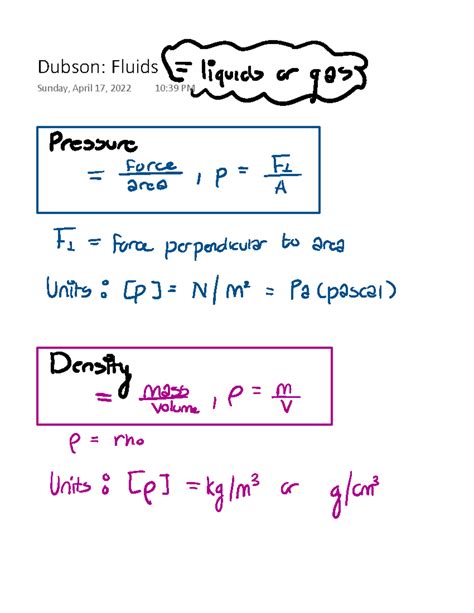 Dubson: Fluids = liquids or gas
Sunday, April 17, 2022 10:39 PM
Pressure
= Force/area , p = F⊥/A
F⊥ = Force perpendicular to area
Units: [p] = N/m² = Pa (pascal)
Density
= mass/volume , ρ = m/V
ρ = rho
Units: [ρ] = kg/m³ or g/cm³